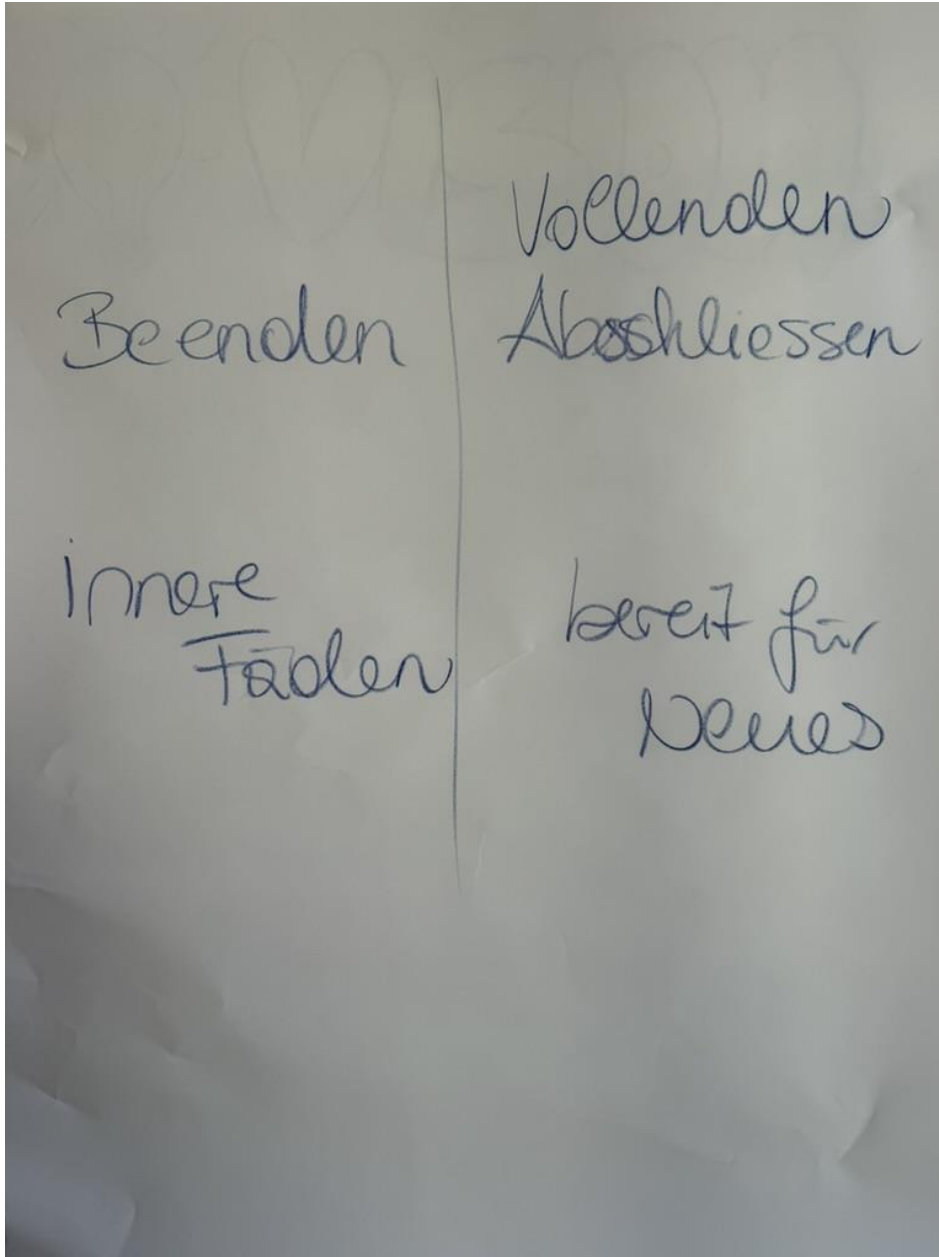 Beenden
innere
Fäden
Vollenden
Abschliessen
bereit für
Neues